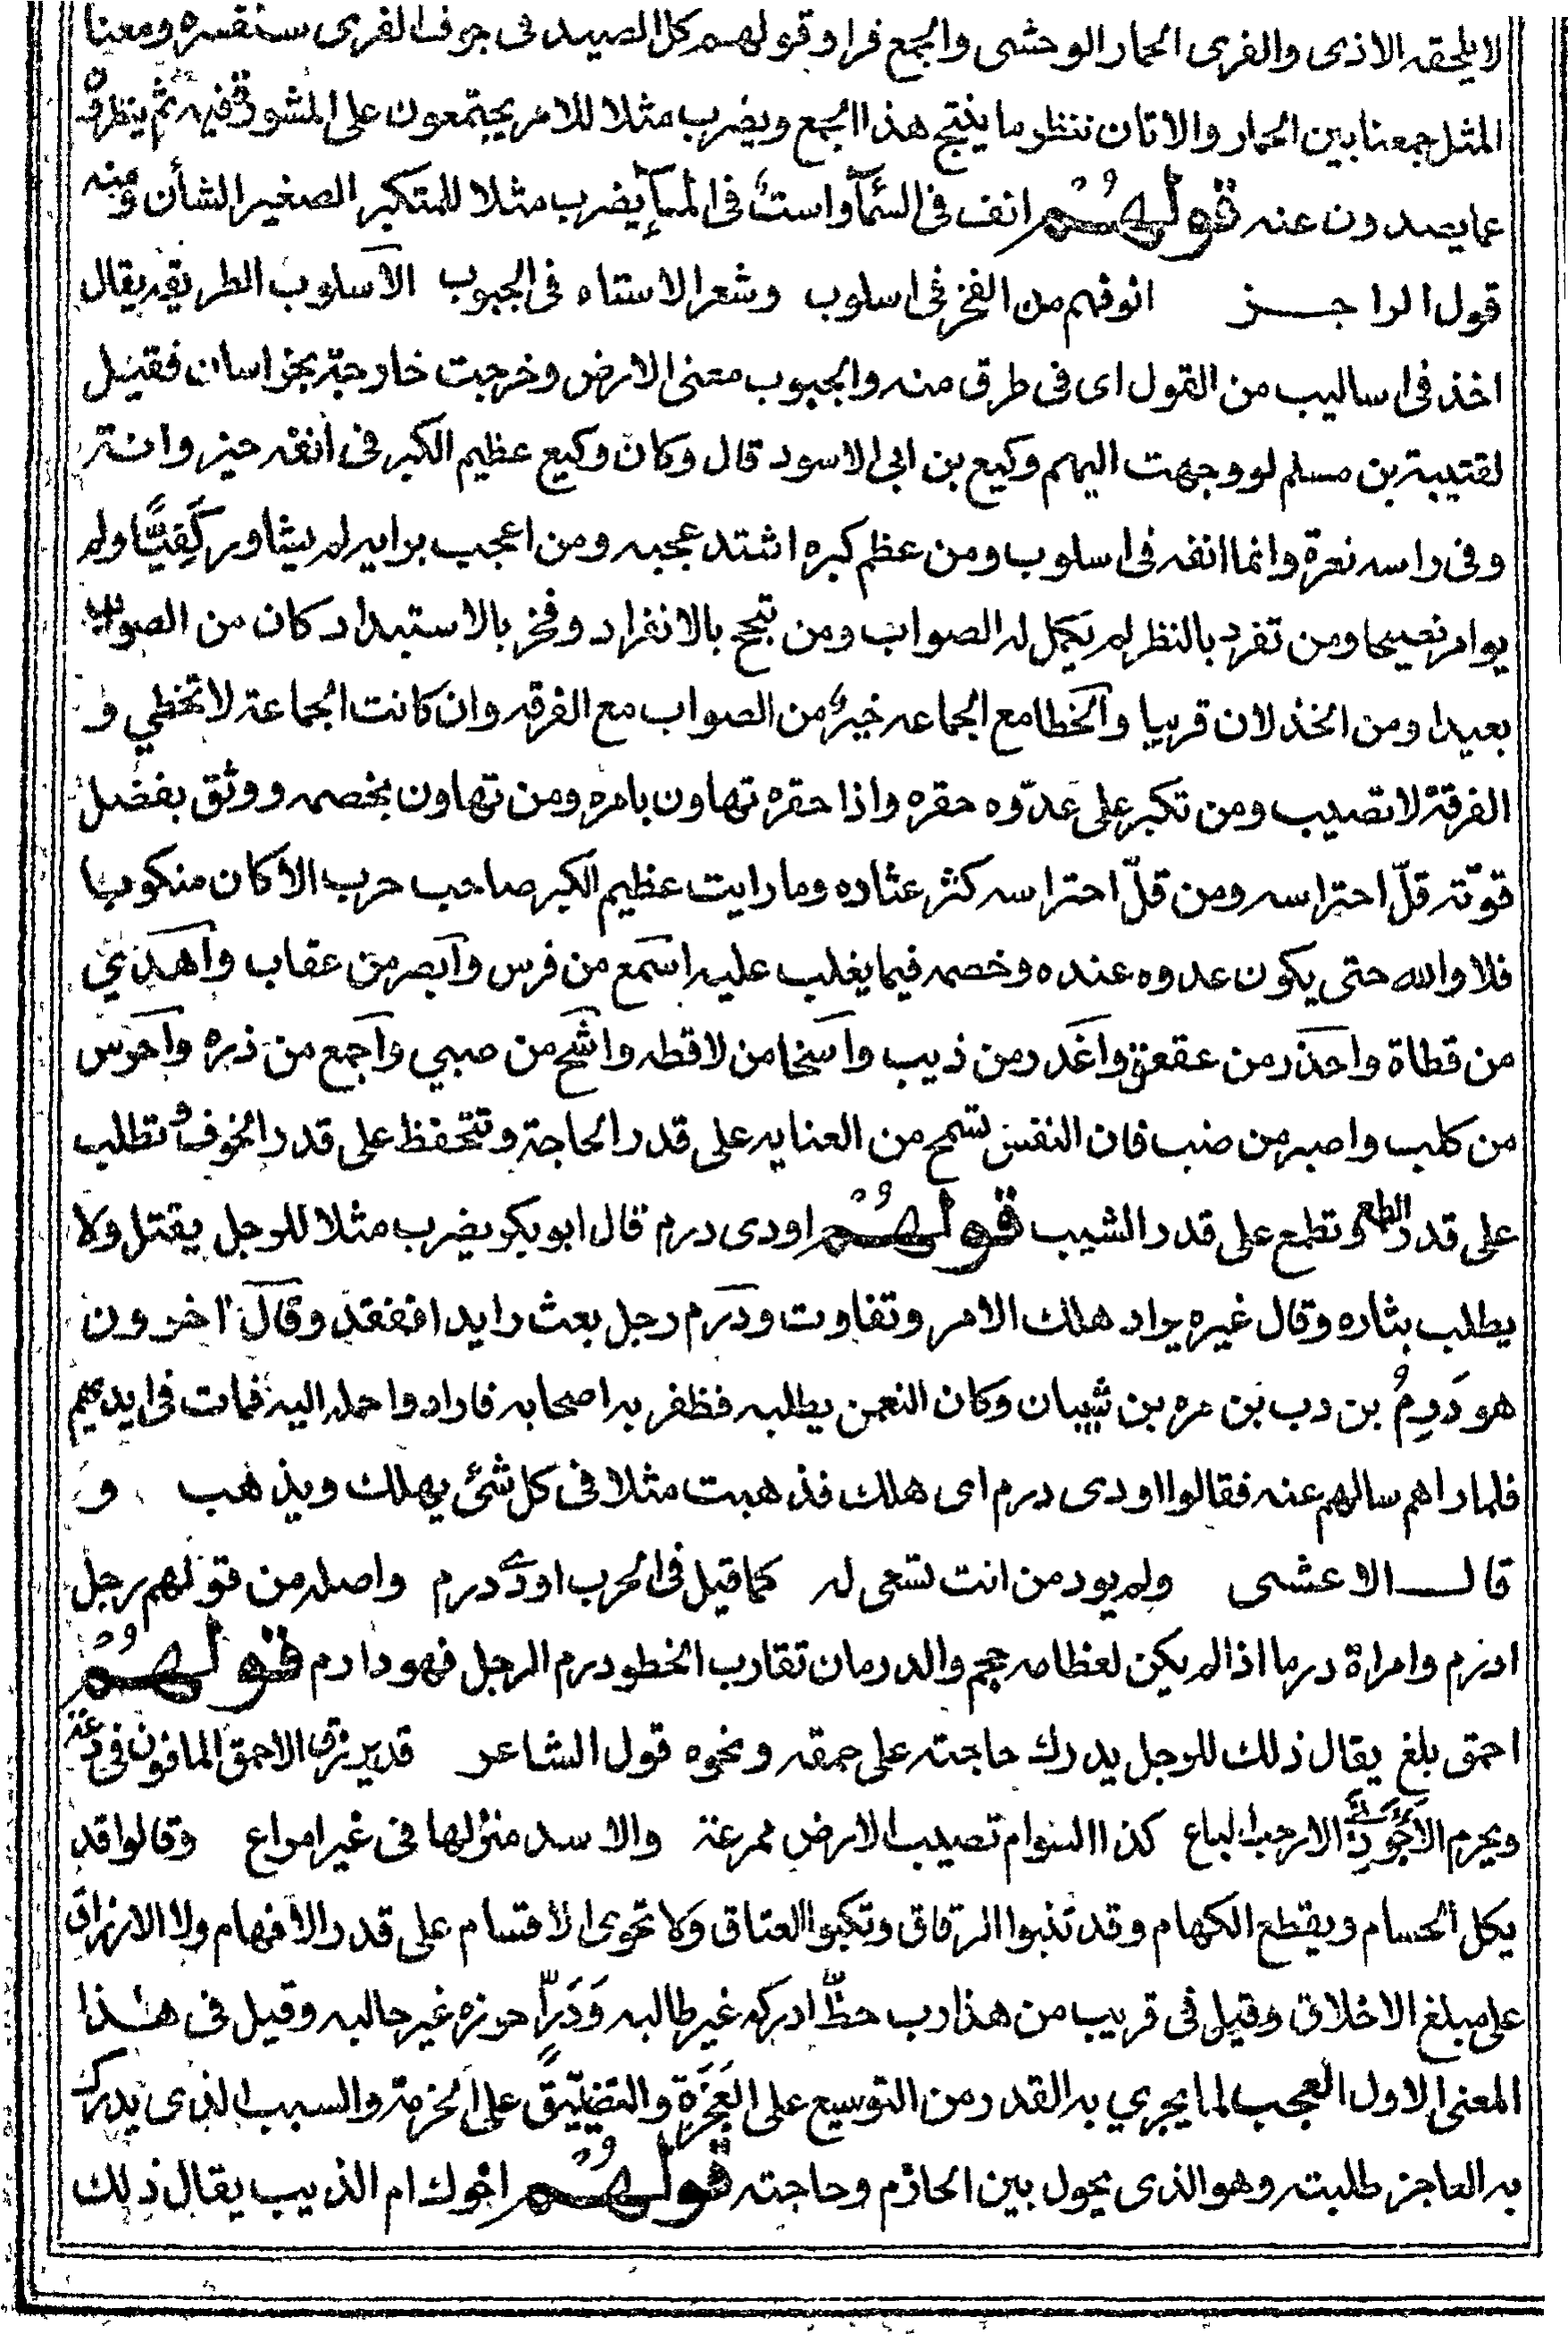 لا يلحقه الاذى والفرى الحمار الوحشى والجمع فرا وقولهم كل الصيد فى جوف الفرى سنفسره ومعنا
المثل جمعنا بين الحمار والاتان ننظر ما ينتج هذا الجمع ويضرب مثلا للامر يجتمعون على المشورة فيه ثم ينظر
عما يصدرون عنه قولهم انف فى السمآ واست فى المآ يضرب مثلا للمتكبر الصغير الشأن ومنه
قول الراجز انوفهم من الفخر فى اسلوب وشعر الاستاه فى الجبوب الاسلوب الطريقه يقال
اخذ فى اساليب من القول اى فى طرق منه والجبوب معنى الارض وخرجت خارجة بخراسان فقيل
لقتيبة بن مسلم لو وجهت اليهم وكيع بن ابى الاسود قال وكان وكيع عظيم الكبر فى انفه
وفى راسه نعرة وانما انفه فى اسلوب ومن عظم كبره اشتد عجبه ومن اعجب برايه لم يشاور كفيّا ولم
يوامر نصيحا ومن تفرد بالنظر لم يكمل له الصواب ومن تبجح بالانفراد وفخر بالاستبداد كان من الصواب
بعيدا ومن الخذلان قريبا والخطا مع الجماعه خير من الصواب مع الفرقه وان كانت الجماعة لا تخطي و
الفرقة لا تصيب ومن تكبر على عدوّه حقره واذا حقره تهاون بامره ومن تهاون بخصمه ووثق بفضل
قوّته قلّ احتراسه ومن قلّ احتراسه كثر عثاره وما رايت عظيم الكبر صاحب حرب الا كان منكوبا
فلا والله حتى يكون عدوه عنده وخصمه فيما يغلب عليه اسمع من فرس وابصر من عقاب واهدي
من قطاة واحذر من عقعق واغدر من ذيب واسخا من لاقطه واشح من صبي واجمع من ذره واحرس
من كلب واصبر من ضب فان النفس تسمح من العنايه على قدر الحاجة وتتحفظ على قدر الخوف وتطلب
على قدر الطمع وتطمع على قدر الشيب قولهم اودى درم قال ابو بكر يضرب مثلا للرجل يقتل ولا
يطلب بثاره وقال غيره يراد هلك الامر وتفاوت ودرم رجل بعث رايدا ففقد وقال اخرون
هو دَرِمُ بن دب بن مره بن شيبان وكان النعمن يطلبه فظفر به اصحابه فارادوا حمله اليه فمات فى ايديهم
فلما راهم سالهم عنه فقالوا اودى درم اى هلك فذهبت مثلا فى كل شئ يهلك ويذهب و
قال الاعشى ولم يود من انت تسعى له كما قيل فى الحرب اودى درم واصله من قولهم رجل
ادرم وامراة درما اذا لم يكن لعظامه حجم والدرمان تقارب الخطو درم الرجل فهو دارم قولهم
احمق بلغ يقال ذلك للرجل يدرك حاجته على حمقه ونحوه قول الشاعر قد يرزق الاحمق المافون فى دعة
ويحرم الاحوذى الارحب الباع كذا السوام تصيب الارض ممرعة والاسد منزلها فى غير امراع وقالوا قد
يكل الحسام ويقطع الكهام وقد تنبوا الرقاق وتكبوا العتاق ولا تحوى الاقسام على قدر الافهام ولا الارزاق
على مبلغ الاخلاق وقيل فى قريب من هذا رب حظّ ادركه غير طالبه وَدَرّ احرزه غير حالبه وقيل فى هذا
المعنى الاول العجب لما يجري به القدر من التوسيع على العَجَزة والتضييق على الحزمة والسبب الذى يدرك
به العاجز طلبته وهو الذى يحول بين الحازم وحاجته قولهم اخوك ام الذيب يقال ذلك